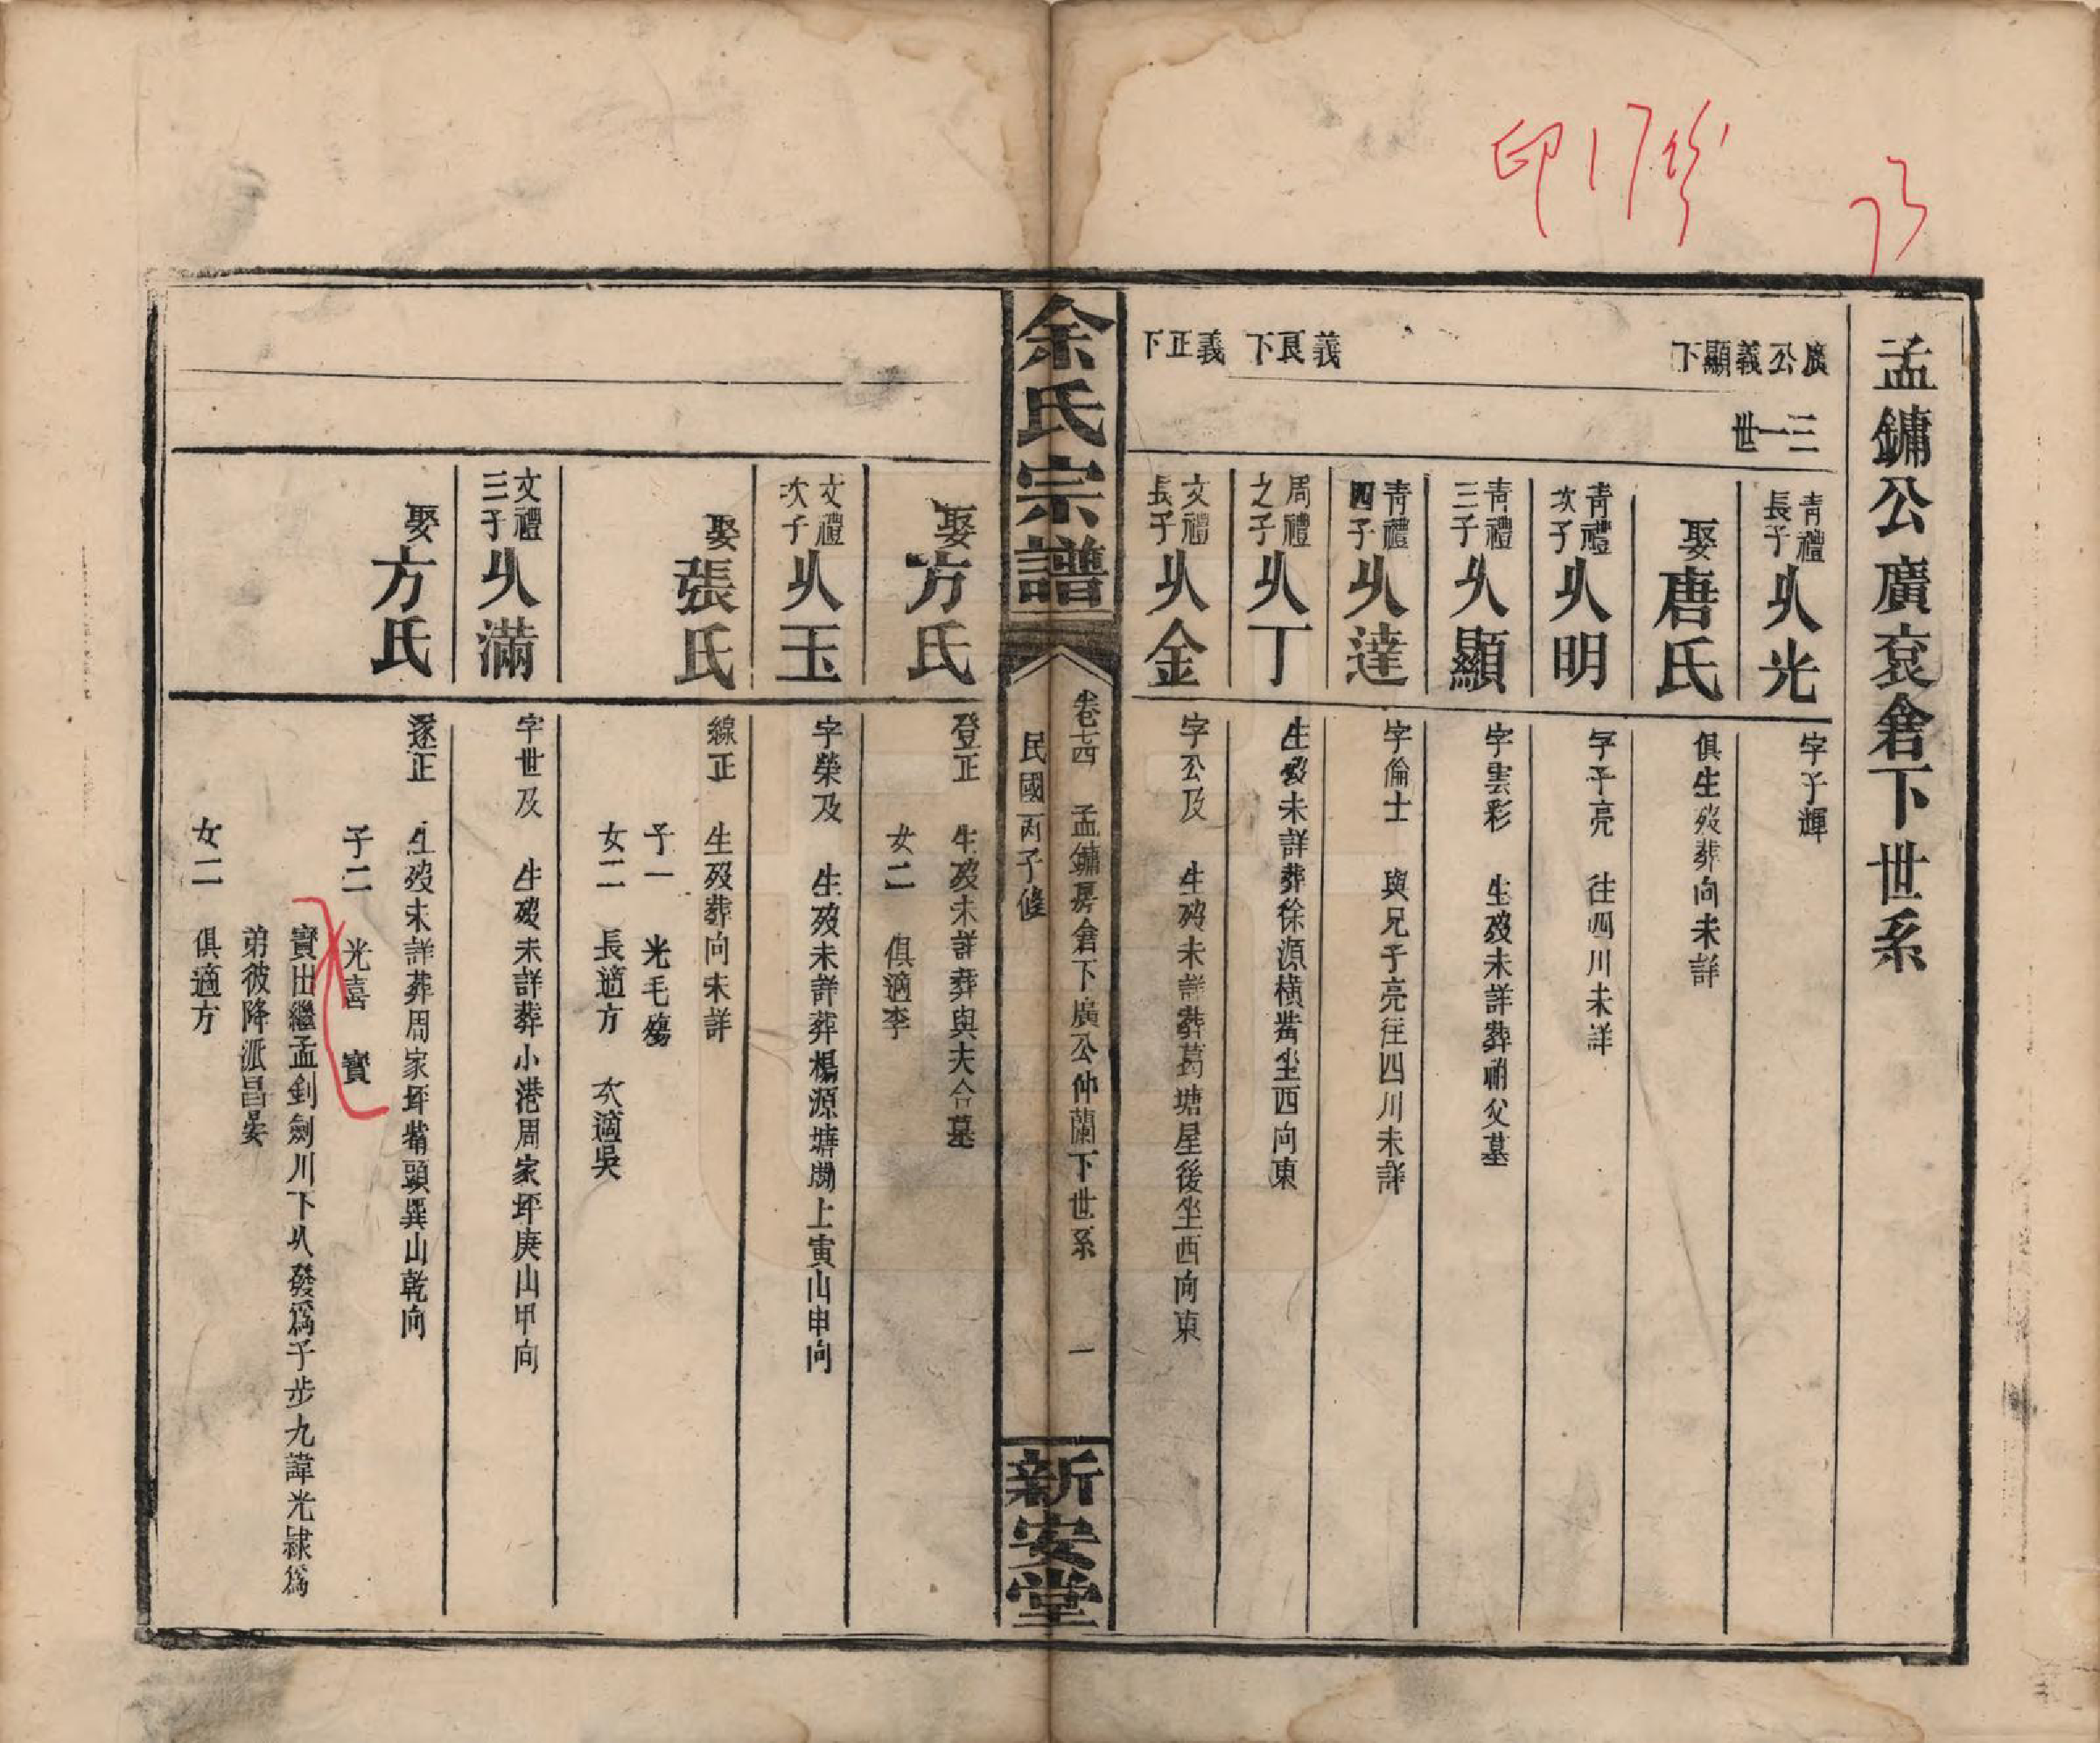 孟鏞公廣袞倉下世系
廣公義顯下
三一世
青禮長子 㕥光
字子輝
娶唐氏
俱生歿葬向未詳
青禮次子 㕥明
字子亮 往四川未詳
青禮三子 㕥顯
字雲彩 生歿未詳葬祔父墓
青禮四子 㕥達
字倫士 與兄子亮往四川未詳
義良下
周禮之子 㕥丁
生歿未詳葬徐源橫嘴坐西向東
義正下
文禮長子 㕥金
字公及 生歿未詳葬葛塘屋後坐西向東
余氏宗譜
卷七四 孟鏞房倉下廣公仲蘭下世系 一
民國丙子修
新安堂
娶方氏
登正 生歿未詳葬與夫合墓
女二 俱適李
文禮次子 㕥玉
字榮及 生歿未詳葬楊源塘塝上寅山申向
娶張氏
線正 生歿葬向未詳
子一 光毛殤
女二 長適方 次適吳
文禮三子 㕥滿
字世及 生歿未詳葬小港周家坪庚山甲向
娶方氏
逐正 生歿未詳葬周家坪嘴頭巽山乾向
子二 光喜 寶
寶出繼孟釗劍川下㕥發為子步九諱光隷為
弟彼降派昌晏
女二 俱適方